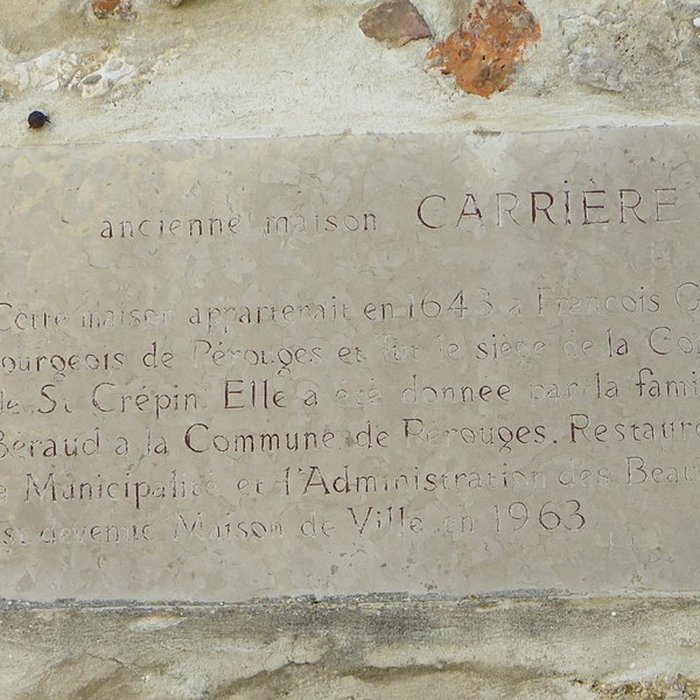 ancienne maison CARRIÈRE
Cette maison appartenait en 1643 a François C
ourgeois de Pérouges et fut le siège de la Co
de St Crépin. Elle a été donnée par la fami
Béraud a la Commune de Pérouges. Restauré
e Municipalité et l'Administration des Beau
st devenue Maison de Ville en 1963